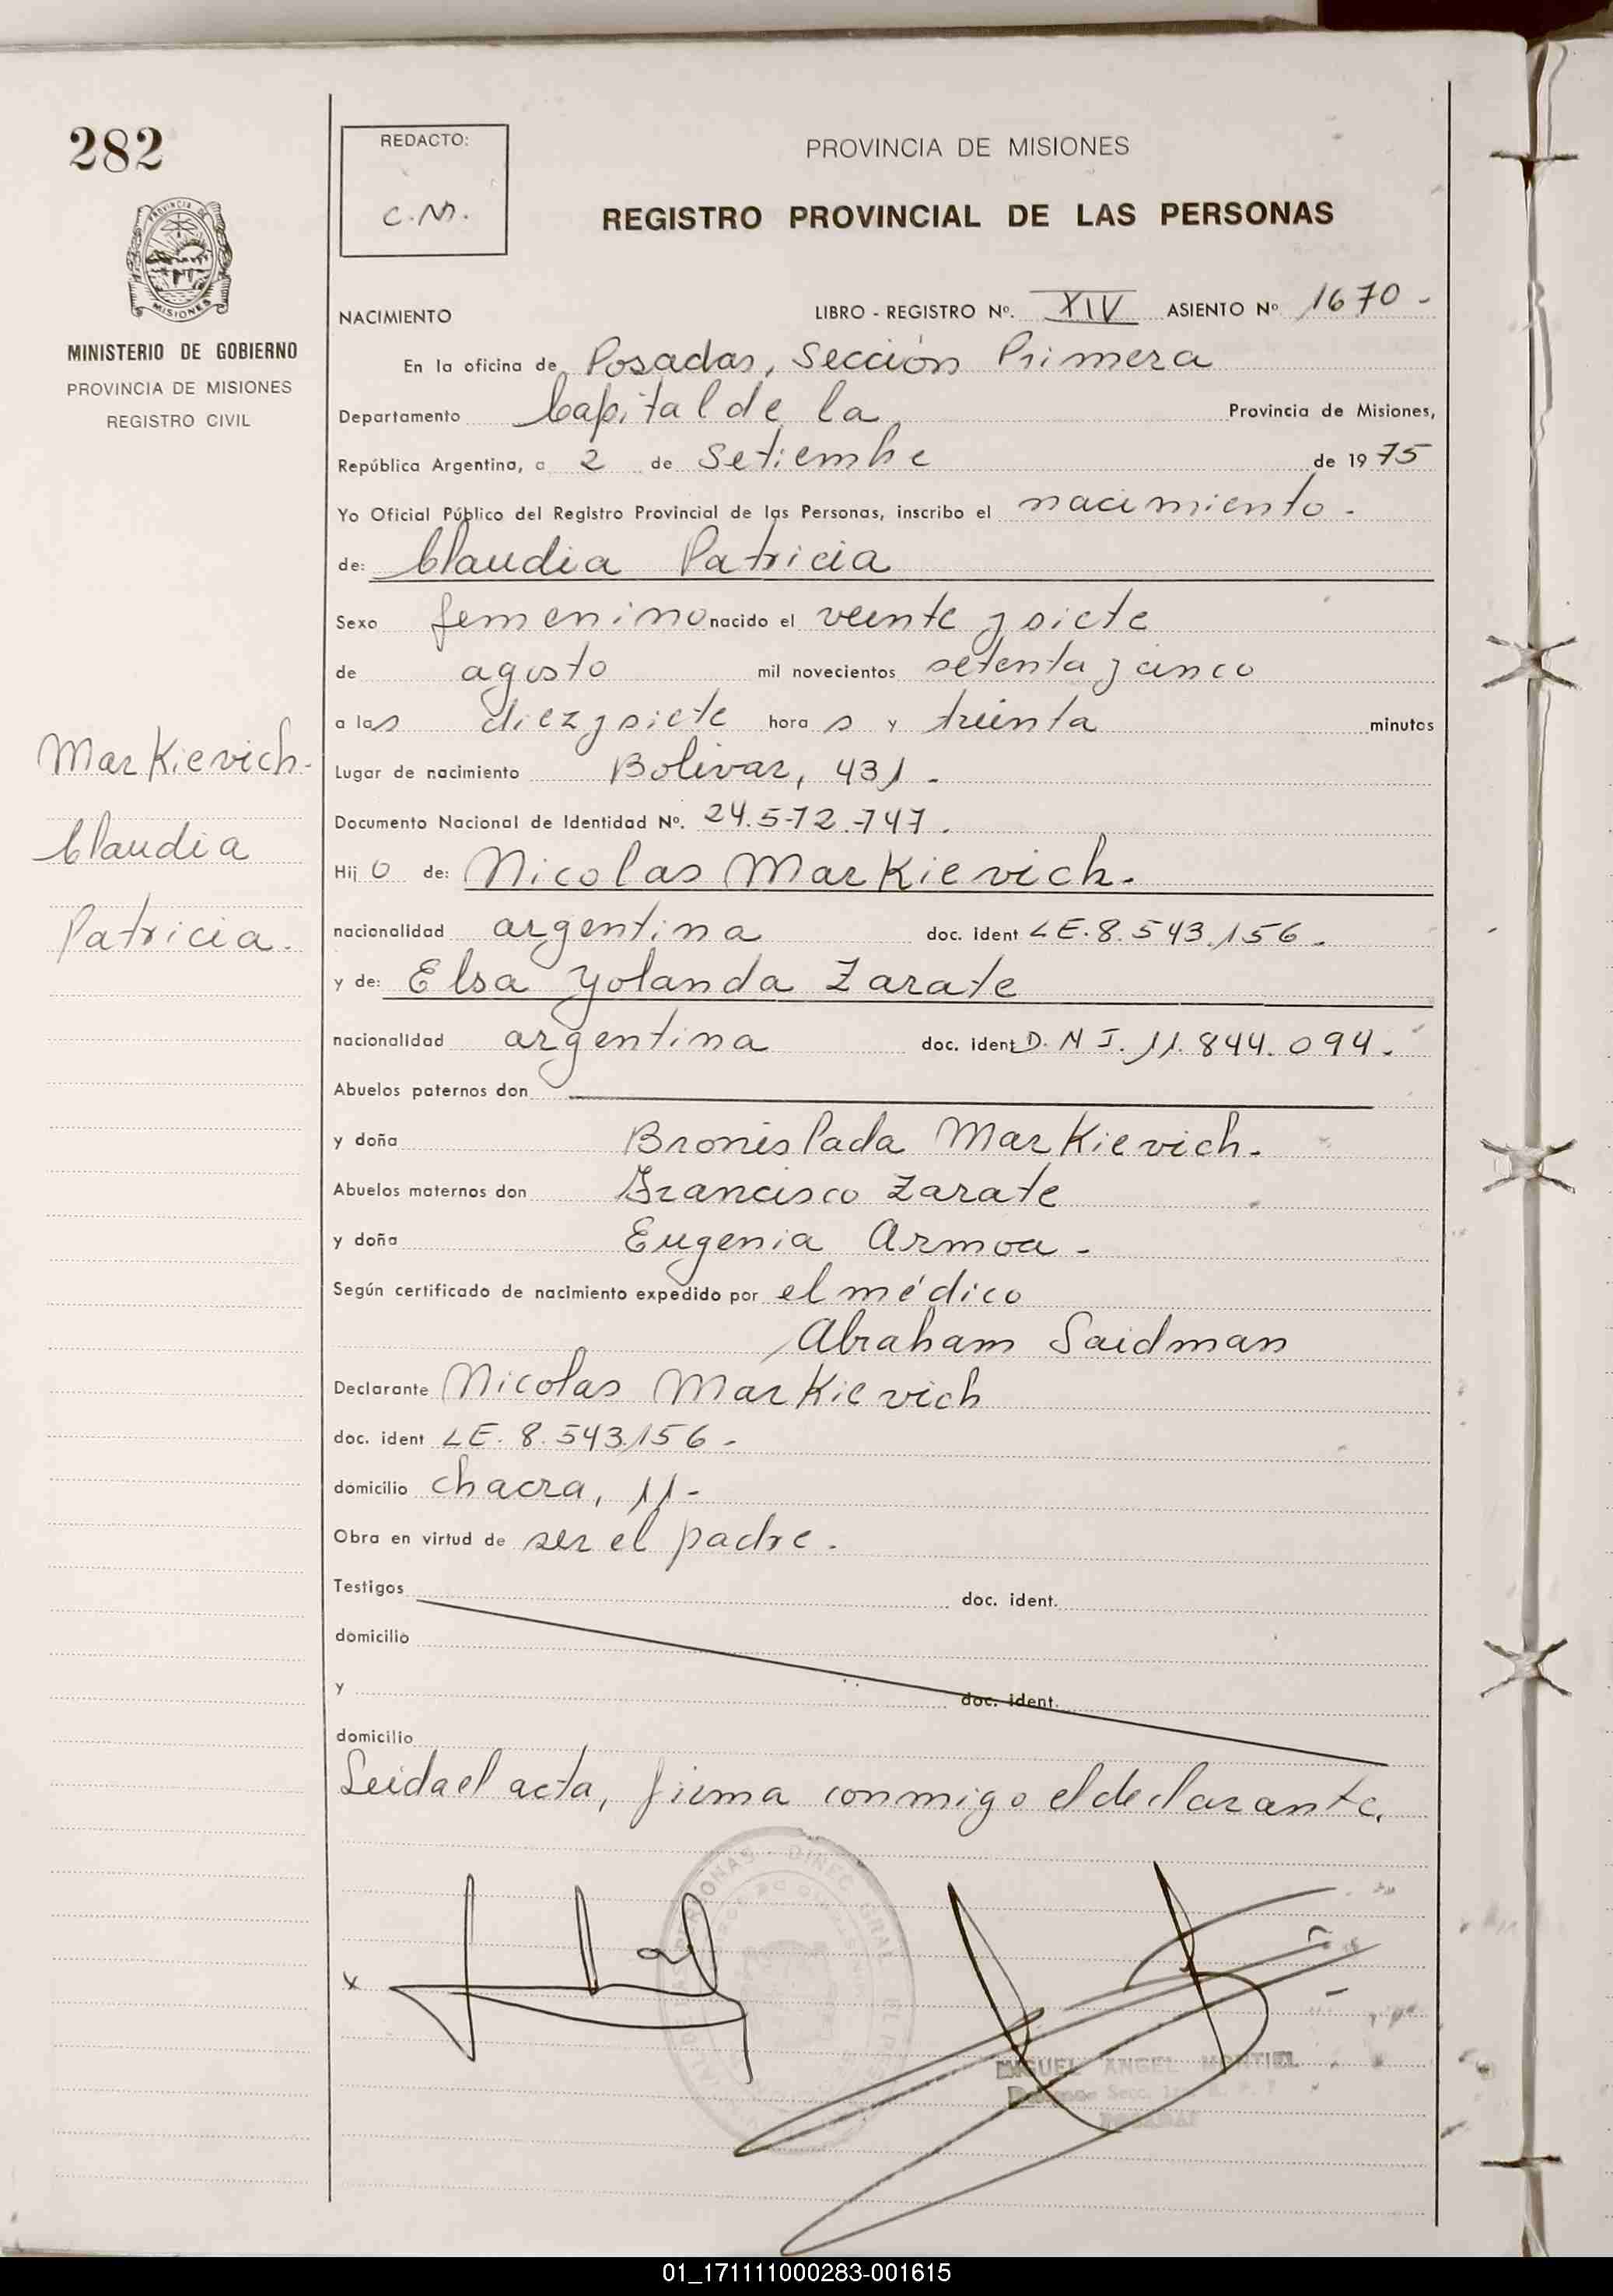 282
REDACTO:
C.M.
PROVINCIA DE MISIONES
REGISTRO PROVINCIAL DE LAS PERSONAS
PROVINCIA DE
MISIONES
MINISTERIO DE GOBIERNO
PROVINCIA DE MISIONES
REGISTRO CIVIL
NACIMIENTO LIBRO - REGISTRO Nº. XIV ASIENTO Nº 1670 -
En la oficina de Posadas, Sección Primera
Departamento Capital de la Provincia de Misiones,
República Argentina, a 2 de Setiembre de 1975
Yo Oficial Público del Registro Provincial de las Personas, inscribo el nacimiento.
de: Claudia Patricia
Sexo femenino nacido el veinte y siete
de agosto mil novecientos setenta y cinco
a las diez y siete hora s y treinta minutos
Lugar de nacimiento Bolivar, 431.
Documento Nacional de Identidad Nº. 24.572.747.
Hij o de: Nicolas Markievich.
nacionalidad argentina doc. ident LE. 8.543.156.
y de: Elsa Yolanda Zarate
nacionalidad argentina doc. ident D.N I. 11.844.094.
Abuelos paternos don
y doña Bronislada Markievich.
Abuelos maternos don Francisco Zarate
y doña Eugenia Armoa -
Según certificado de nacimiento expedido por el médico
Abraham Saidman
Declarante Nicolas Markievich
doc. ident LE. 8.543.156 -
domicilio chacra, 11-
Obra en virtud de ser el padre.
Testigos doc. ident.
domicilio
y doc. ident.
domicilio
Leida el acta, firma conmigo el declarante.
Markievich.
Claudia
Patricia.
x
MIGUEL ANGEL MONTIEL
01_171111000283-001615